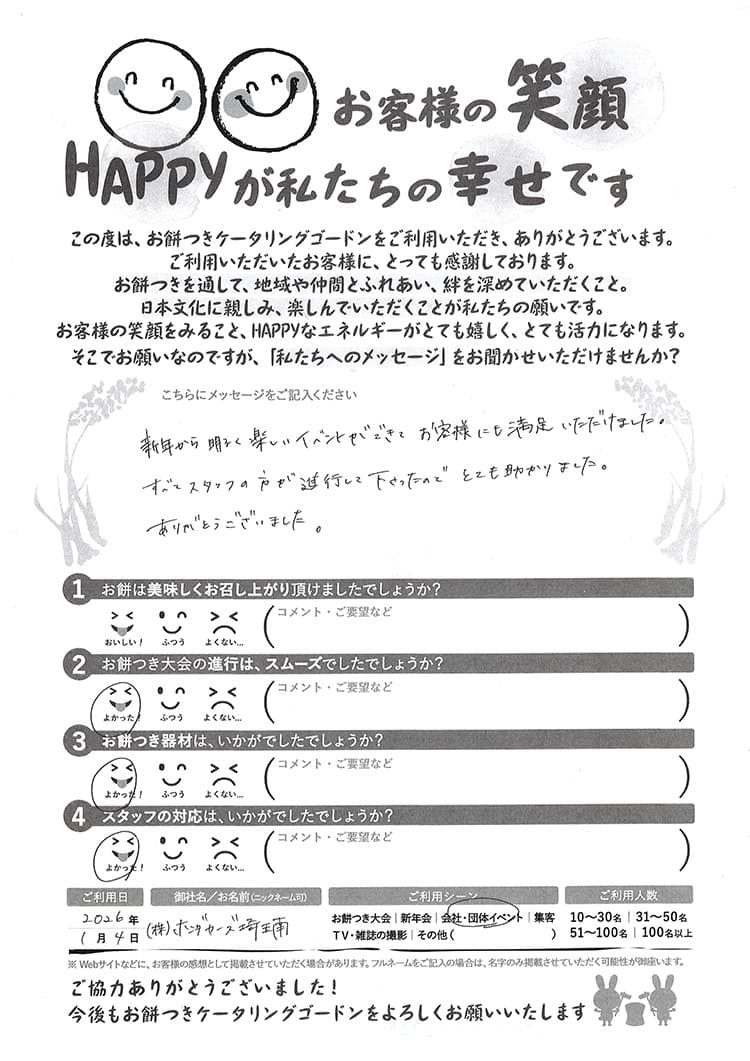 お客様の笑顔
HAPPYが私たちの幸せです
この度は、お餅つきケータリングゴードンをご利用いただき、ありがとうございます。
ご利用いただいたお客様に、とっても感謝しております。
お餅つきを通して、地域や仲間とふれあい、絆を深めていただくこと。
日本文化に親しみ、楽しんでいただくことが私たちの願いです。
お客様の笑顔をみること、HAPPYなエネルギーがとても嬉しく、とても活力になります。
そこでお願いなのですが、「私たちへのメッセージ」をお聞かせいただけませんか?
こちらにメッセージをご記入ください
新年から明るく楽しいイベントができて お客様にも満足いただけました。
すべてスタッフの方が進行して下さったので とても助かりました。
ありがとうございました。
1 お餅は美味しくお召し上がり頂けましたでしょうか?
コメント・ご要望など
おいしい! ふつう よくない…
2 お餅つき大会の進行は、スムーズでしたでしょうか?
コメント・ご要望など
よかった! ふつう よくない…
3 お餅つき器材は、いかがでしたでしょうか?
コメント・ご要望など
よかった! ふつう よくない…
4 スタッフの対応は、いかがでしたでしょうか?
コメント・ご要望など
よかった! ふつう よくない…
ご利用日 御社名/お名前(ニックネーム可) ご利用シーン ご利用人数
2026年 (株)ホンダカーズ埼玉南 お餅つき大会|新年会|会社・団体イベント|集客 10〜30名|31〜50名
1月4日 TV・雑誌の撮影|その他( ) 51〜100名|100名以上
※ Webサイトなどに、お客様の感想として掲載させていただく場合があります。フルネームをご記入の場合は、名字のみ掲載させていただく可能性が御座います。
ご協力ありがとうございました!
今後もお餅つきケータリングゴードンをよろしくお願いいたします